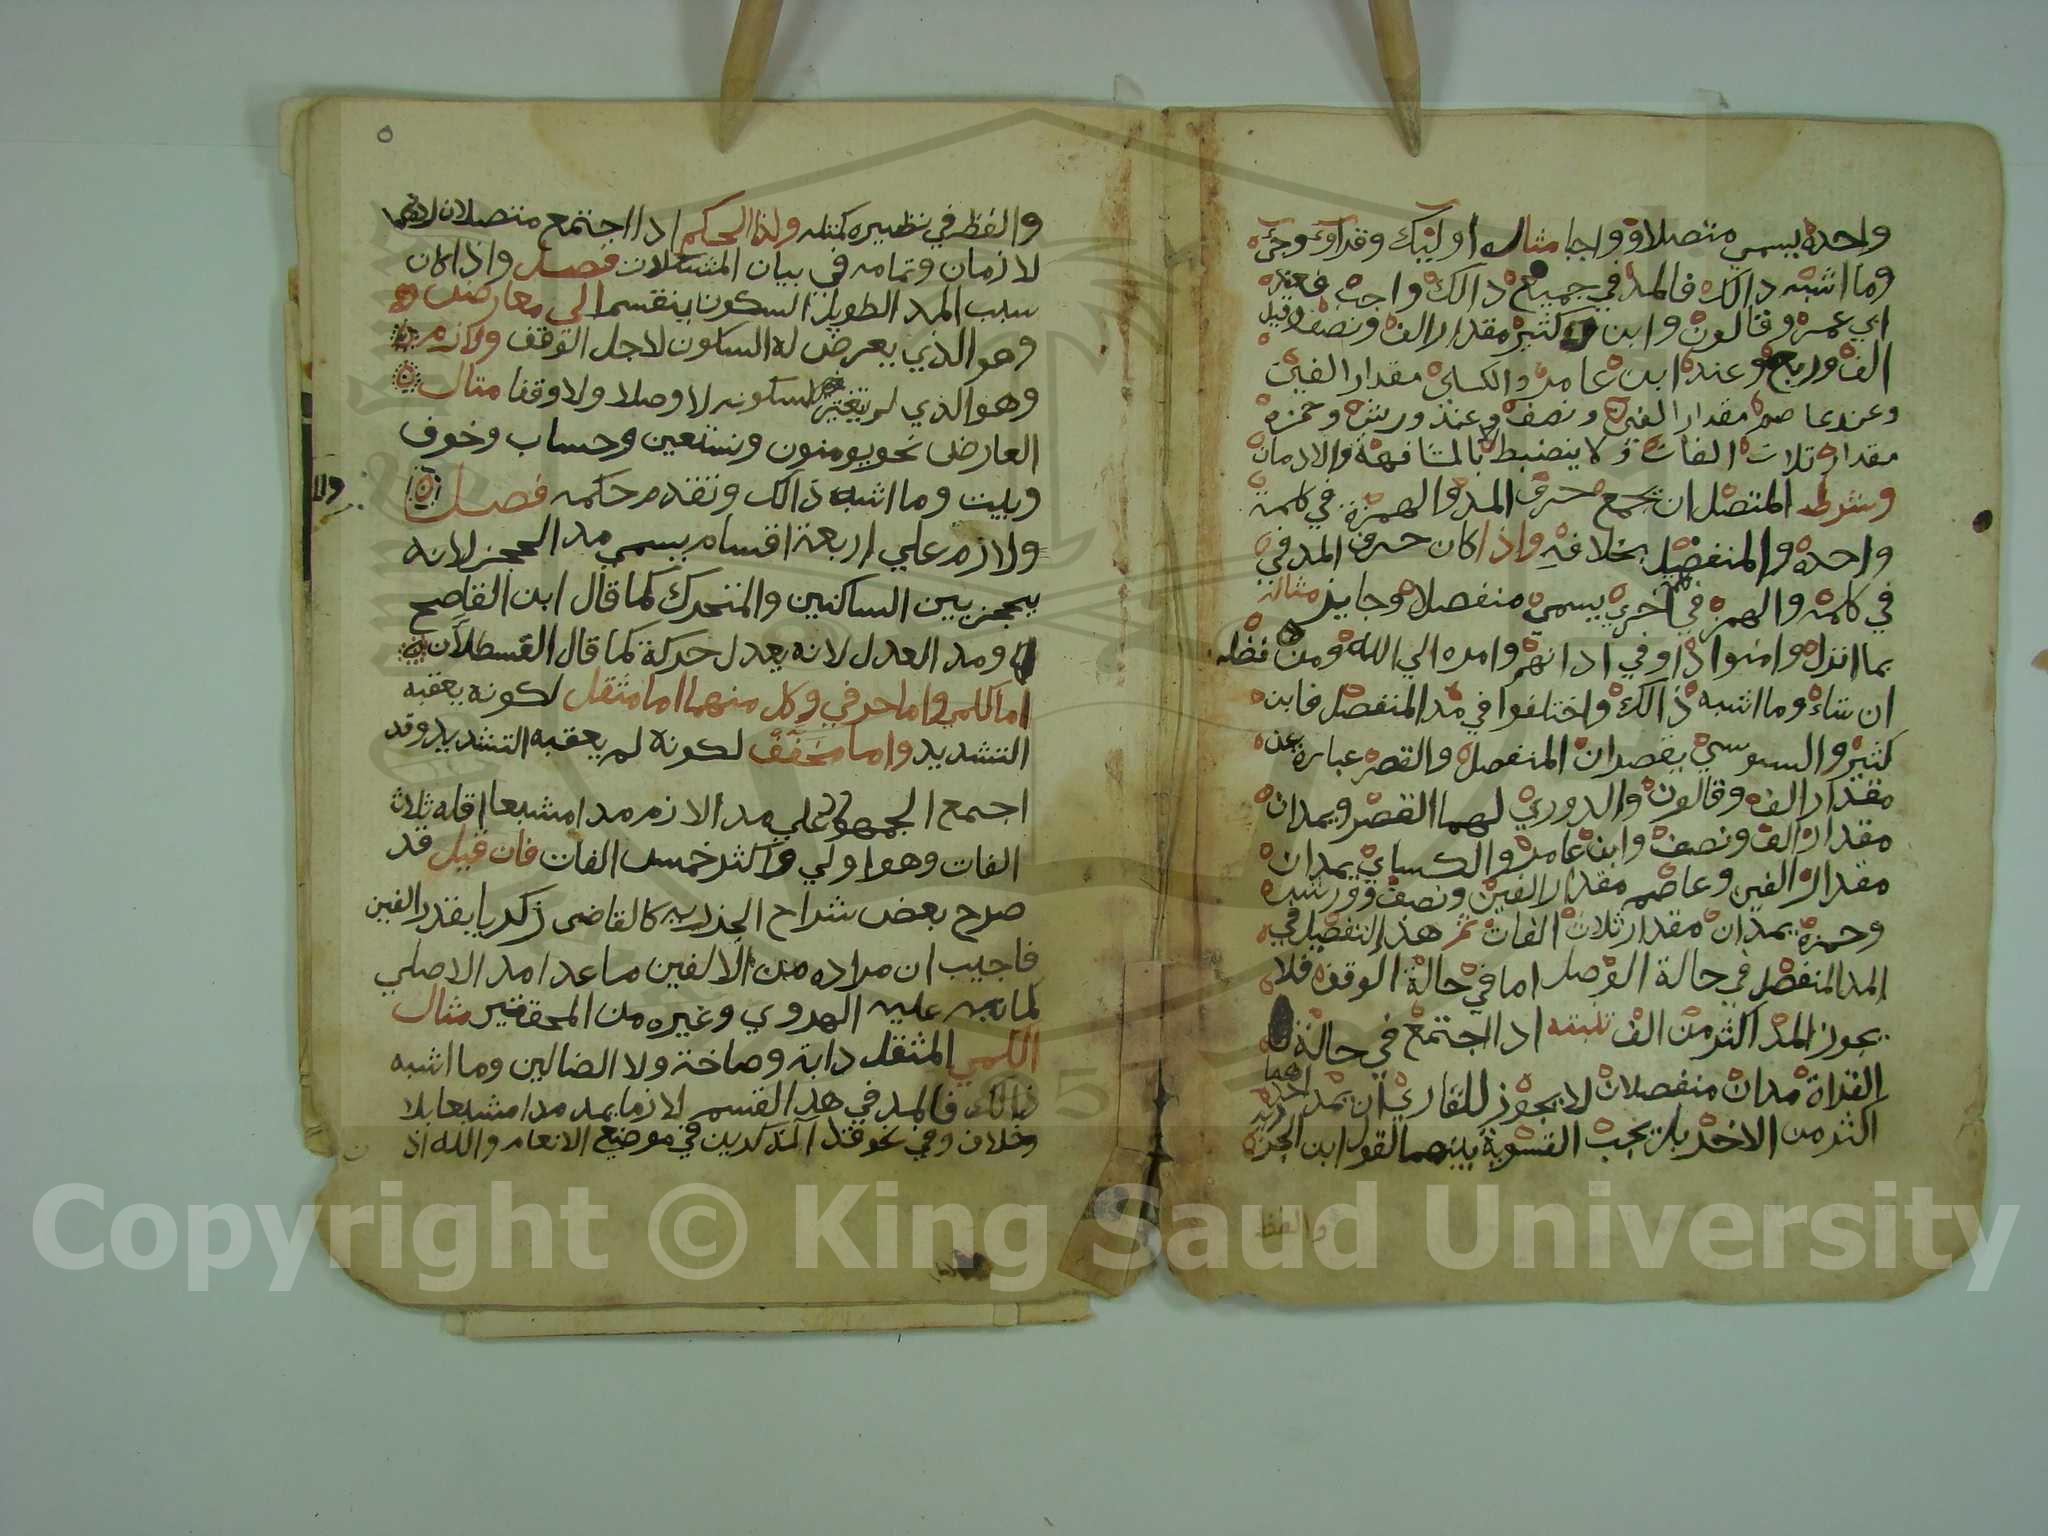 واحدة يسمي متصلا وواجبا مثال اوليك وقد اوء وجيء
وما اشبه ذالك فالمد في جميع ذالك واجب فعند
ابي عمرو وقالون وابن كثير مقدار الف ونصف وقيل
الف وربع وعند ابن عامر والكساي مقدار الفين
وعند عاصم مقدار الفين ونصف وعند ورش وحمزة
مقدار ثلاث الفات ولا ينضبط الا بالمشافهة والادمان
وشرط المتصل ان تجمع حرف المد والهمزة في كلمة
واحدة والمنفصل بخلافه واذا كان حرف المد في
في كلمة والهمز في اخري يسمي منفصلا وجايز مثاله
بما انزل وامنوا اوفي اذانهم وامره الي الله ومن
ان شاء وما اشبه ذالك واختلفوا في مد المنفصل فابن
كثير والسوسي يقصران المنفصل والقصر عبارة عن
مقدار الف وقالون والدوري لهما القصر ويمدان
مقدار الف ونصف وابن عامر والكساي يمدان
مقدار الفين وعاصم مقدار الفين ونصف وورش
وحمزة يمدان مقدار ثلاث الفات ثم هذا التفصيل في
المد المنفصل في حالة الوصل اما في حالة الوقف فلا
يجوز المد اكثر من الف تنبيه اذا اجتمع في حالة
القراة مدان منفصلان لا يجوز للقاري ان يمد احدهما
اكثر من الاخر بل تجب التسوية بينهما لقول ابن الجزري
واللفظ
٥
واللفظ في نظيره كمثله وكذا الحكم اذا اجتمع متصلان او
لازمان وتمامه في بيان المشكلات فصل واذا كان
سبب المد الطويل السكون ينقسم الي عارض
وهو الذي يعرض له السكون لاجل الوقف ولازم
وهو الذي لم يتغير سكونه لا وصلا ولا وقفا مثال
العارض نحو يومنون ونستعين وحساب وخوف
وبيت وما اشبه ذالك وتقدم حكمه فصل
ولازم علي اربعة اقسام يسمي مد الحجز لانه
يحجز بين الساكنين والمتحرك كما قال ابن القاصح
ومد العدل لانه يعدل حركة كما قال القسطلان
اما كلمي واما حرفي وكل منهما اما مثقل لكونه يعقبه
التشديد واما مخفف لكونه لم يعقبه التشديد وقد
اجتمع الجمهور علي مد الازم مدا مشبعا اقله ثلاث
الفات وهو اولي واكثر خمس الفات فان قيل قد
صرح بعض شراح الجزرية كالقاضي زكريا بقدر الفين
فاجيب ان مراده من الالفين ماعدا مد الاصلي
كما نبه عليه الهروي وغيره من المحققين مثال
الكلمي المثقل دابة وصاخة ولا الضالين وما اشبه
ذالك فالمد في هذا القسم لازما يمد مدا مشبعا بلا
وخلاف وفي نحو قل آلذكرين في موضع الانعام والله اذ
Copyright © King Saud University